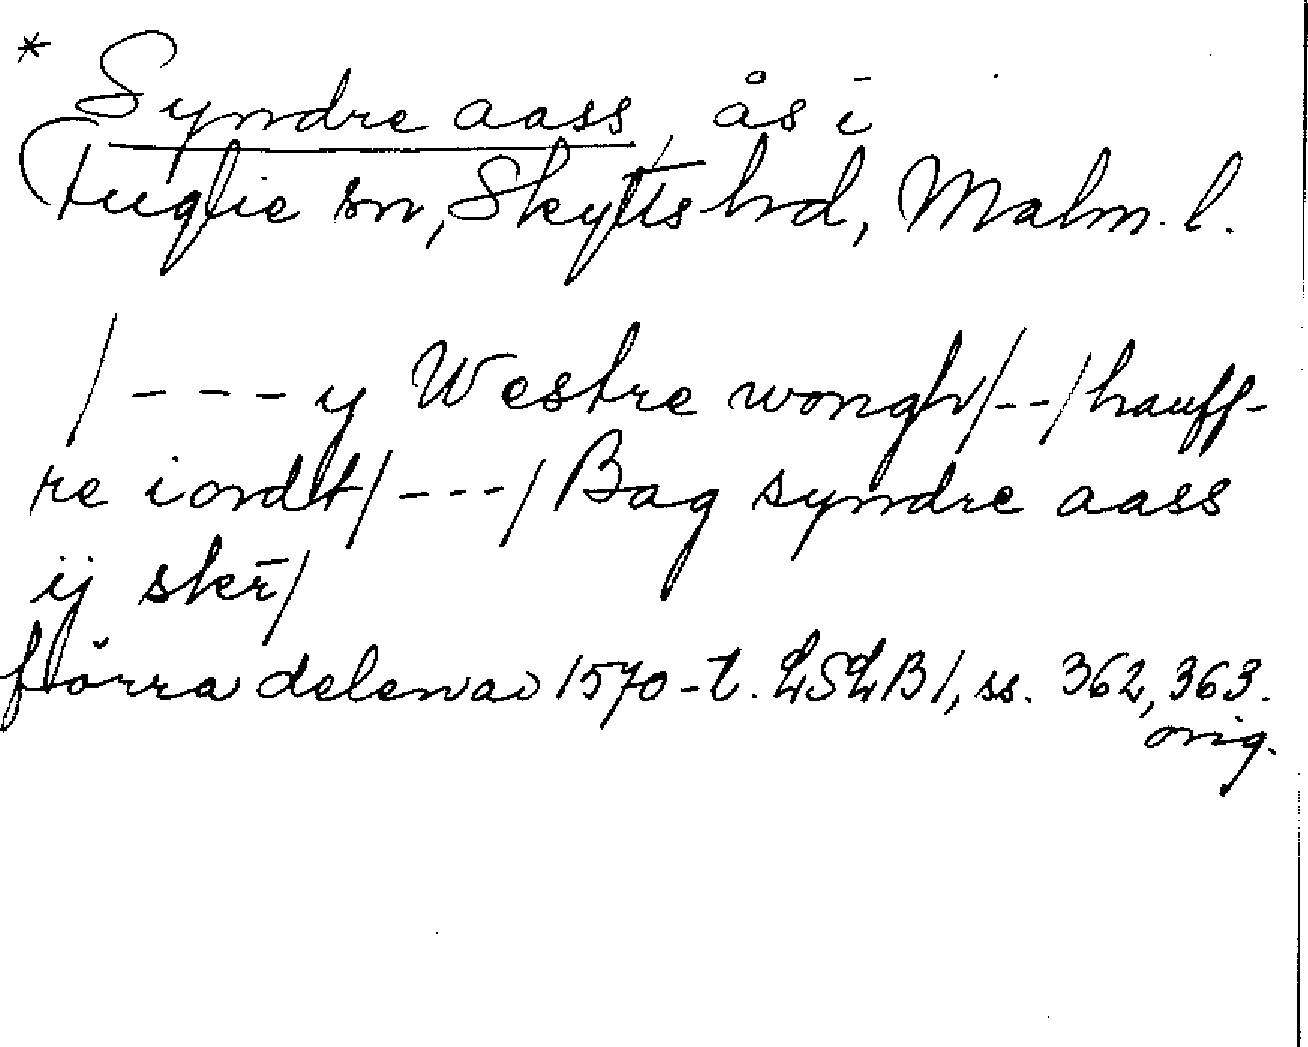 * Syndre aass, ås i
Fuglie sn, Skytts hd, Malm. l.
/---y Westre wongh/--/hauff-
re iordt/---/Bag syndre aass
ij skr̄/
förra delen av 1570-t. LSLB1, ss. 362, 363.
orig.